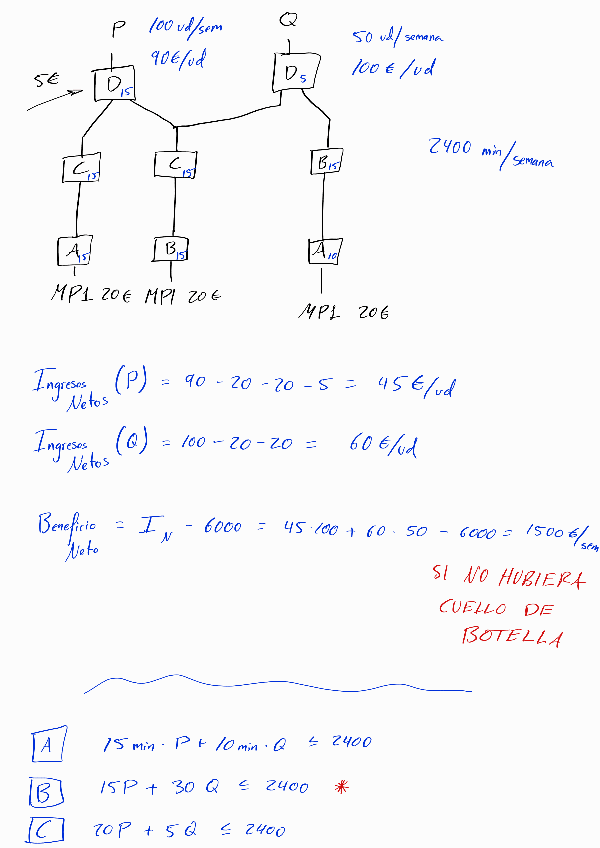 P 100 ud/sem
Q 50 ud/semana
90€/ud
100 €/ud
5€
D 15
D 5
2400 min/semana
C 15
C 15
B 15
A 5
B 15
A 10
MP1 20€ MP1 20€
MP1 20€
Ingresos Netos (P) = 90 - 20 - 20 - 5 = 45€/ud
Ingresos Netos (Q) = 100 - 20 - 20 = 60€/ud
Beneficio Neto = I_N - 6000 = 45·100 + 60·50 - 6000 = 1500€/sem
SI NO HUBIERA
CUELLO DE
BOTELLA
A 15 min · P + 10 min · Q ≤ 2400
B 15P + 30 Q ≤ 2400 *
C 20P + 5Q ≤ 2400